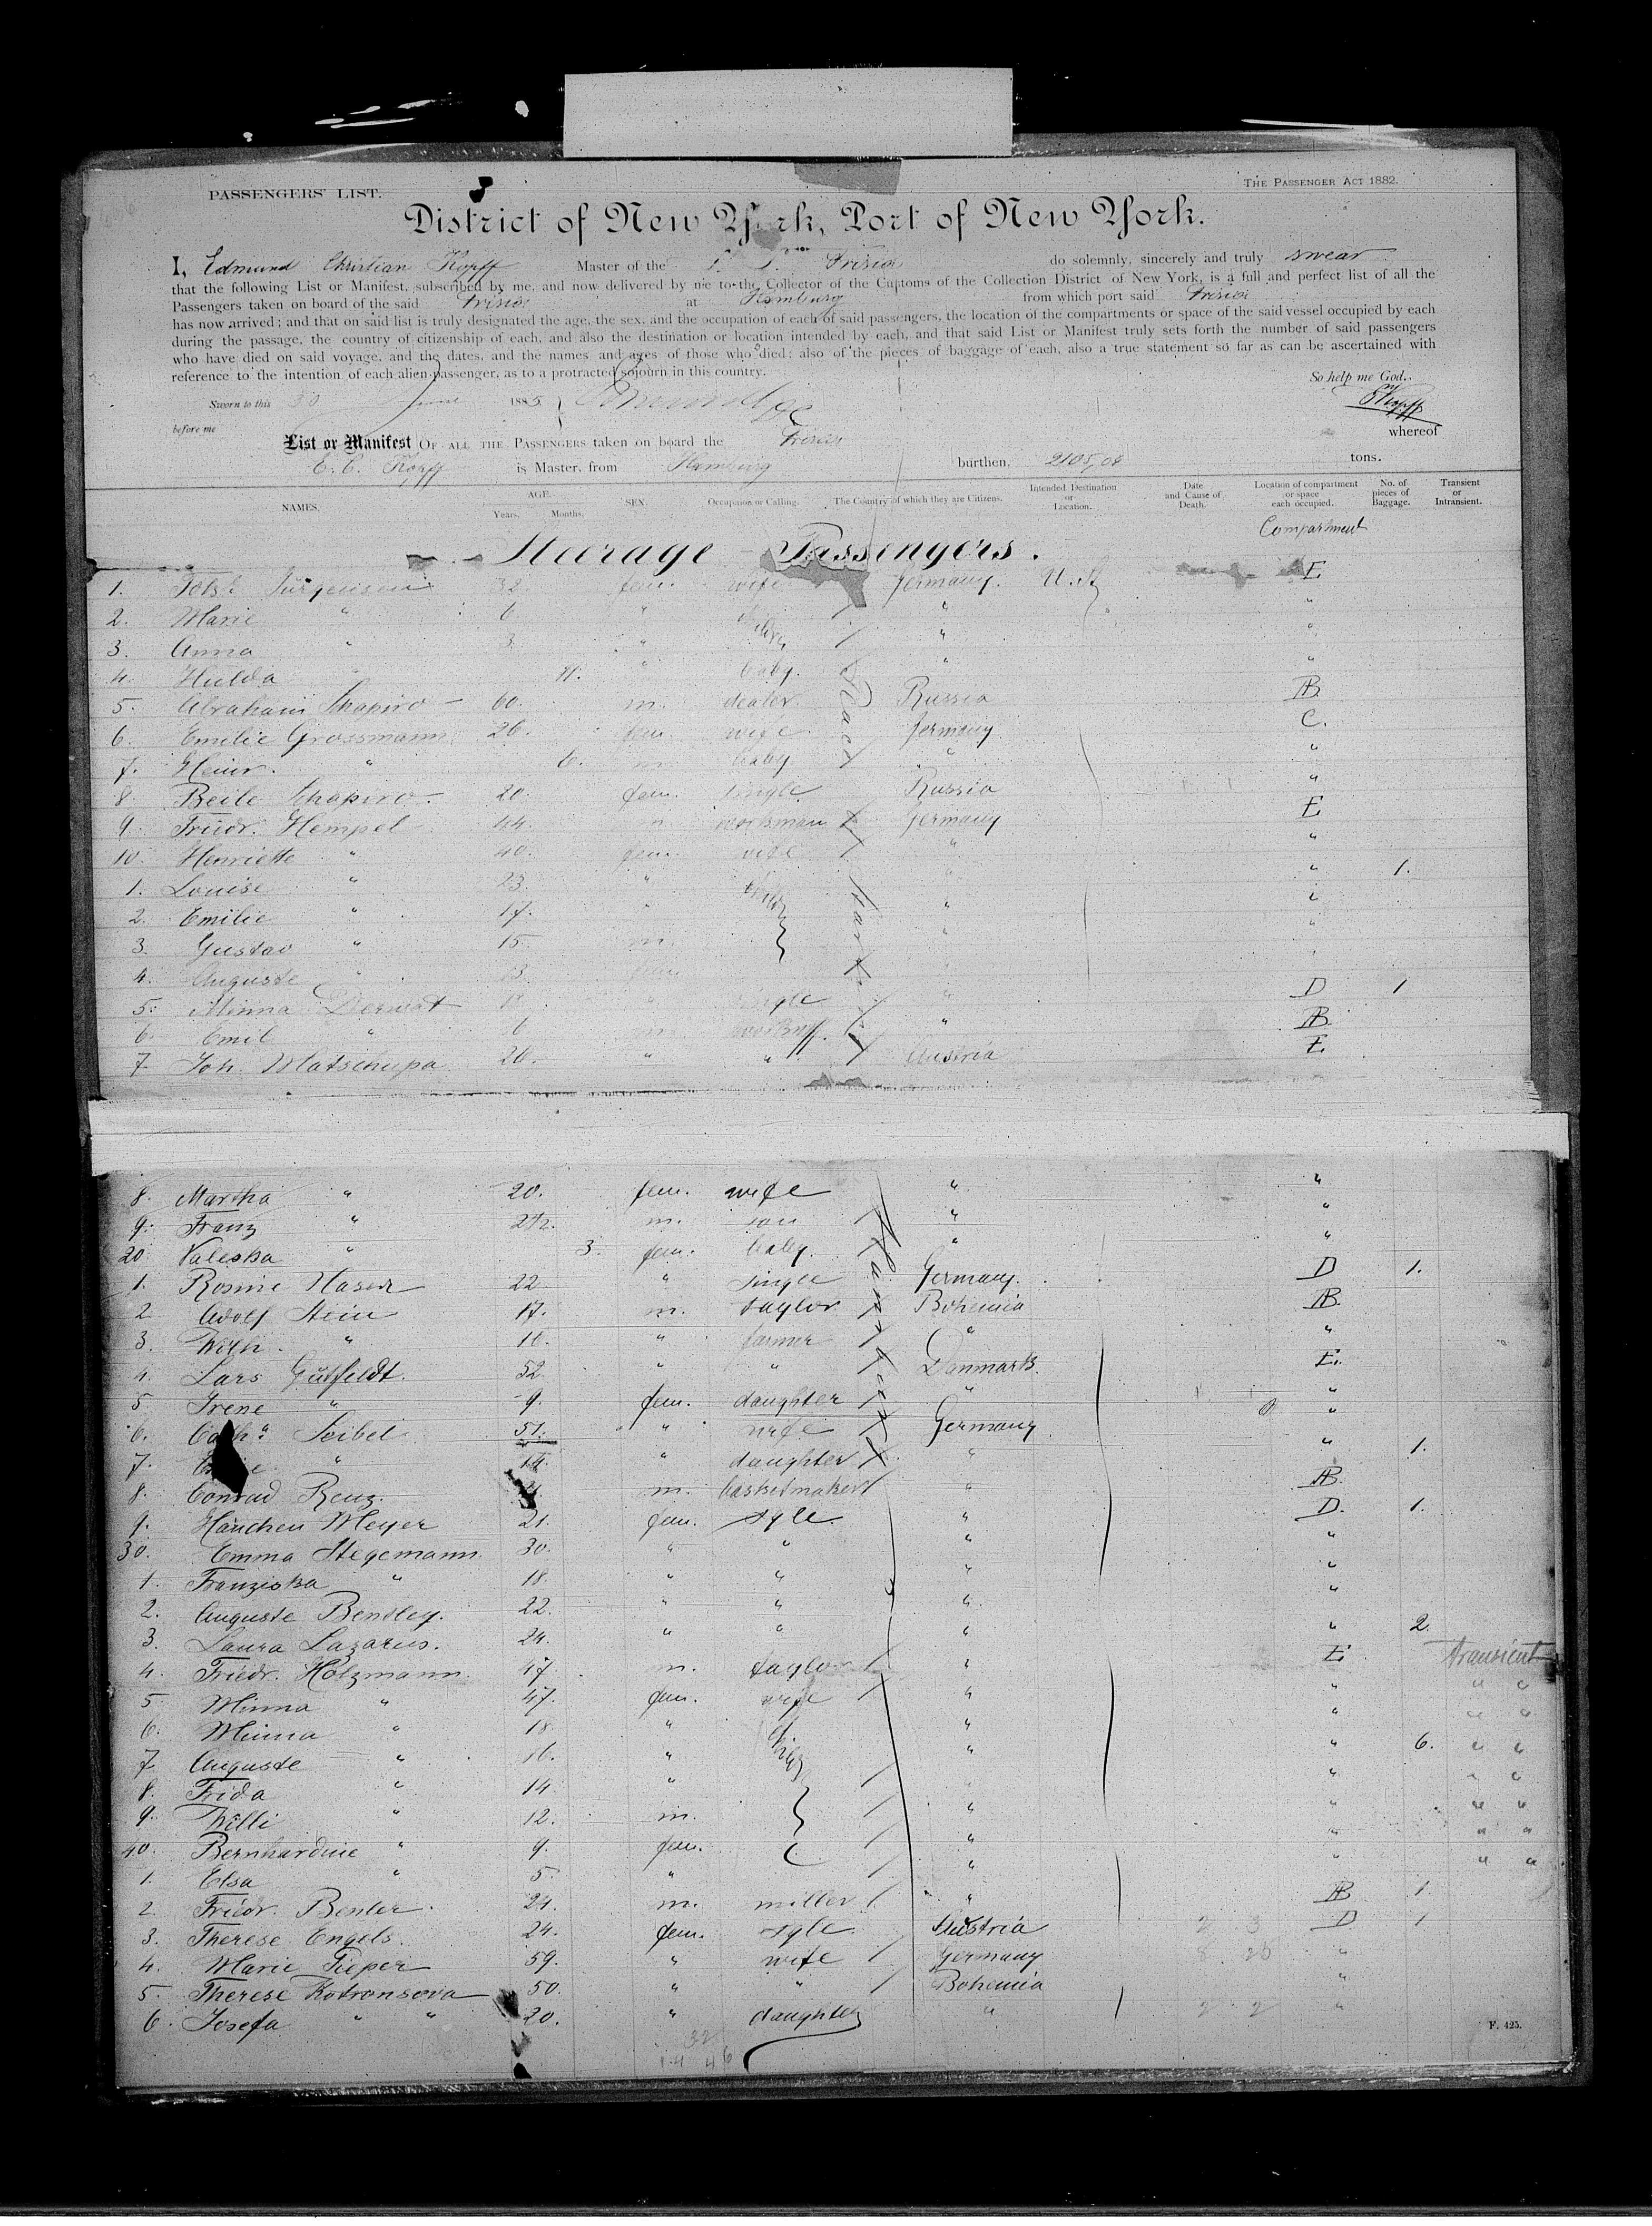 PASSENGERS' LIST.
THE PASSENGER ACT 1882.
District of New York, Port of New York.
I, Edmund Christian Kopff Master of the S. S. Frisia do solemnly, sincerely and truly swear
that the following List or Manifest, subscribed by me, and now delivered by me to the Collector of the Customs of the Collection District of New York, is a full and perfect list of all the
Passengers taken on board of the said Frisia at Hamburg from which port said Frisia
has now arrived; and that on said list is truly designated the age, the sex, and the occupation of each of said passengers, the location of the compartments or space of the said vessel occupied by each
during the passage, the country of citizenship of each, and also the destination or location intended by each, and that said List or Manifest truly sets forth the number of said passengers
who have died on said voyage, and the dates, and the names and ages of those who died; also of the pieces of baggage of each, also a true statement so far as can be ascertained with
reference to the intention of each alien passenger, as to a protracted sojourn in this country.
So help me God.
Sworn to this 30 June 1885
Kopff
before me
List or Manifest OF ALL THE PASSENGERS taken on board the Frisia whereof
E. C. Kopff is Master, from Hamburg burthen, 2105,04 tons.
NAMES. AGE. Years. Months. SEX. Occupation or Calling. The Country of which they are Citizens. Intended Destination or Location. Date and Cause of Death. Location of compartment or space each occupied. No. of pieces of Baggage. Transient or Intransient.
Compartment
Steerage Passengers.
1. Jürgensen 32 fem. wife Germany. U.S. E
2. Marie " 6 " "
3. Anna " 3 " " "
4. Hulda " 11. " baby. " "
5. Abraham Schapiro 60. m. dealer Russia AB
6. Emilie Grossmann 26. fem. wife Germany C.
7. Heinr. " 6. m. baby " "
8. Beile Schapiro 20. fem. single Russia "
9. Friedr. Hempel 44. m. workman Germany E
10. Henriette " 40. fem. wife " "
1. Louise " 23. " " " 1.
2. Emilie " 17. " " "
3. Gustav " 15. m. " "
4. Auguste " 13. fem.
5. Minna single " D 1
6. Emil " m. " AB
7. Joh. Matschupa 26. " " Austria E
8. Martha " 20. fem. wife " "
9. Franz " m. son " "
20. Valeska " 3. fem. baby. " "
1. Rosine Haser 22. " single Germany. D 1.
2. Adolf Stein 17. m. taylor Bohemia AB.
3. Wilh. " 16. " farmer " "
4. Lars Gutfeldt. 52 " " Danmark. E.
5. Irene " 9. fem. daughter " "
6. Cath. Seibel 51. " wife Germany "
7. " 14. " daughter " " 1.
8. Conrad Renz. m. basketmaker " AB.
9. Hänchen Meyer 21. fem. sgle. " D. 1.
30. Emma Stegemann 30. " " " "
1. Franziska " 18. " " " "
2. Auguste Bensley. 22. " " " "
3. Laura Lazarus. 24. " " " " 2.
4. Friedr. Holzmann. 47. m. taylor " E. transient
5. Minna " 47. fem. wife " " " "
6. Minna " 18. " " " " "
7. Auguste " 16. " " " 6. " "
8. Frida " 14. " " " " "
9. Willi " 12. m. " " " "
40. Bernhardine " 9. fem. " " " "
1. Elsa " 5. " " " " "
2. Friedr. Benler. 24. m. miller " AB 1.
3. Therese Engels. 24. fem. sgle. Austria D 1
4. Marie Pieper 59. " wife Germany "
5. Therese Kotronsova 50. " " Bohemia "
6. Josefa " " 20. " daughter " "
F. 425.